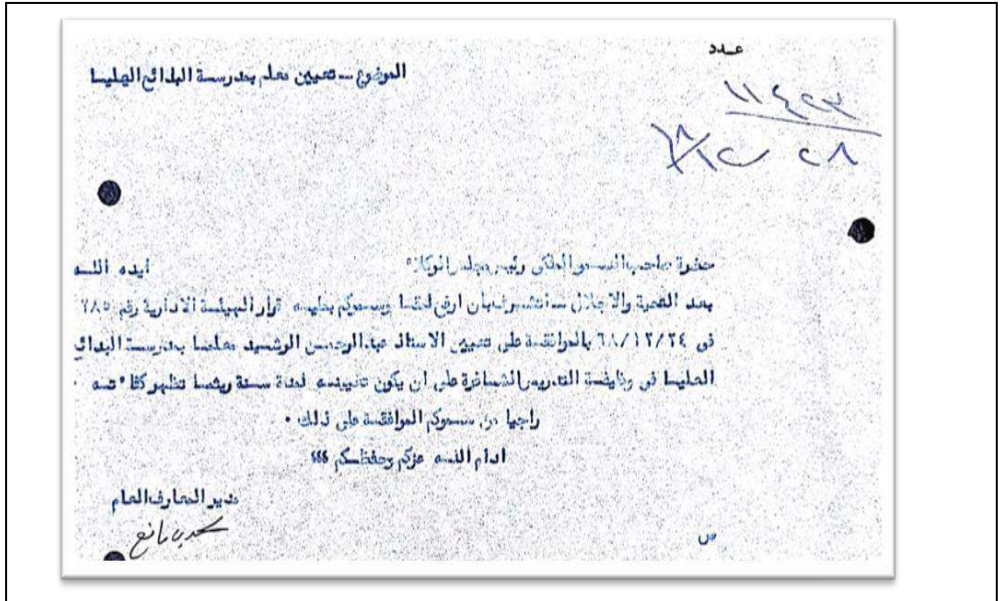 عدد
١١٤٢٣
٢٨ / ١٢ / ٦٨
الموضوع ــ تعيين معلم بمدرسة البدائع العليا
حضرة صاحب السمو الملكي رئيس مجلس الوكلاء ايده اللــه
بعد التحية والاجلال ــ اتشــرف بان ارفع لمقا وسموكم بطيــه قرار الهيئــة الادارية رقم ٦٨٥
في ٦٨/١٢/٢٤ بالموافقــة على تعيين الاستاذ عبد الرحمــن الرشــيد معلمــا بمدرســة البدائع
العليــا في وظيفــة التدريس الشــاغرة على ان يكون تعيينــه لمدة ســنة ريثمــا تظهر كفاءتــه ٠
راجيا من ســموكم الموافقــة على ذلك ٠
ادام اللــه عزكم وحفظــكم ؛؛؛
مدير المعارف العام
محمد بن مانع
ص